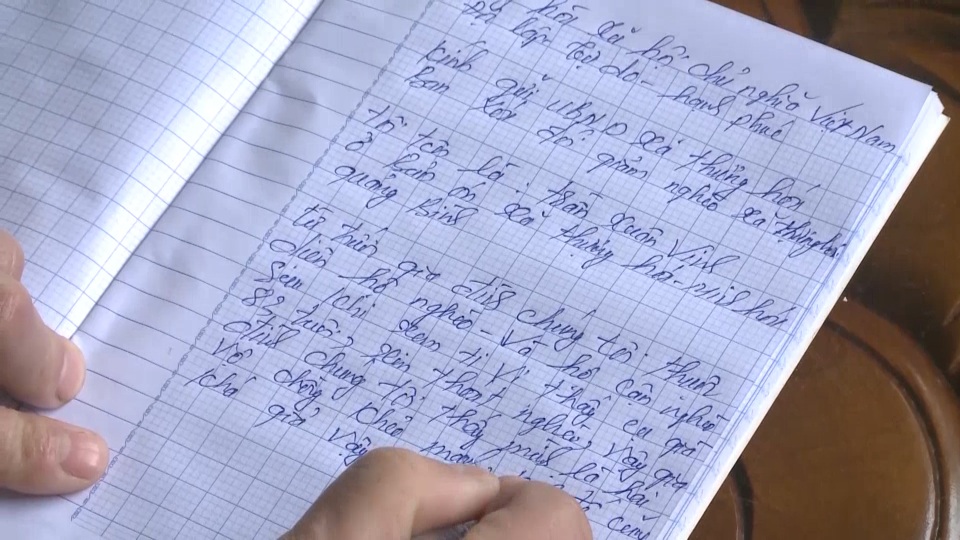 hội xã hội chủ nghĩa Việt Nam
độc lập tự do - hạnh phúc
Kính gửi UBND xã thượng hoá
Ban xóa đói giảm nghèo xã thượng hoá
tôi tên là: trần xuân Vinh
ở bản ón xã thượng hoá - minh hoá
quảng Bình
từ trước gia đình chúng tôi thuộc
diện hộ nghèo - và hộ cận nghèo
Sau khi xem ti vi thấy cụ già
83 tuổi, xin thoát nghèo, vậy gia
đình chúng tôi thấy mình là hai
vợ chồng khỏe
khá giả vậy